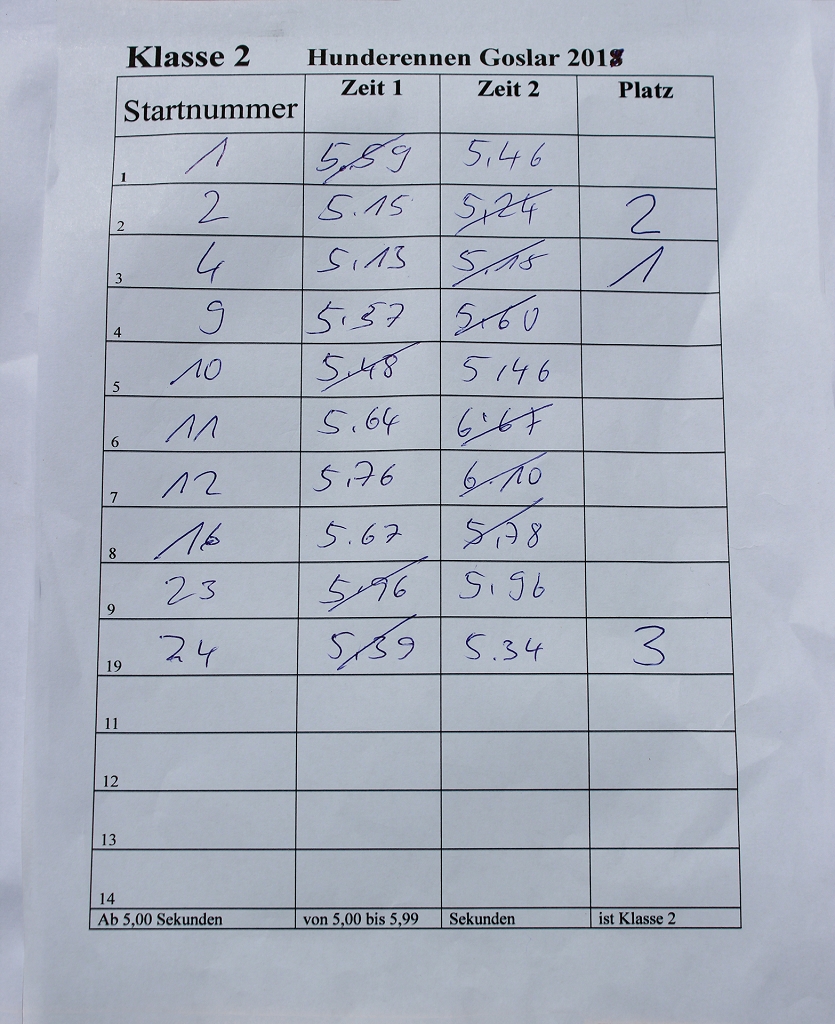 Klasse 2 Hunderennen Goslar 2018
Startnummer Zeit 1 Zeit 2 Platz
1 1 5,59 5,46
2 2 5.15 5,24 2
3 4 5,13 5,15 1
4 9 5.57 5.60
5 10 5.48 5,46
6 11 5.64 6.67
7 12 5,76 6.10
8 16 5.67 5,78
9 23 5.96 5.96
19 24 5,39 5.34 3
11
12
13
14
Ab 5,00 Sekunden von 5,00 bis 5,99 Sekunden ist Klasse 2